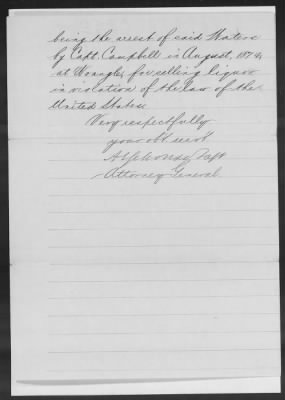 being the arrest of said Waters
by Capt. Campbell in August, 1874,
at Wrangle, for selling liquor
in violation of the law of the
United States.
Very respectfully
your obt servt
Alphonso Taft
Attorney General